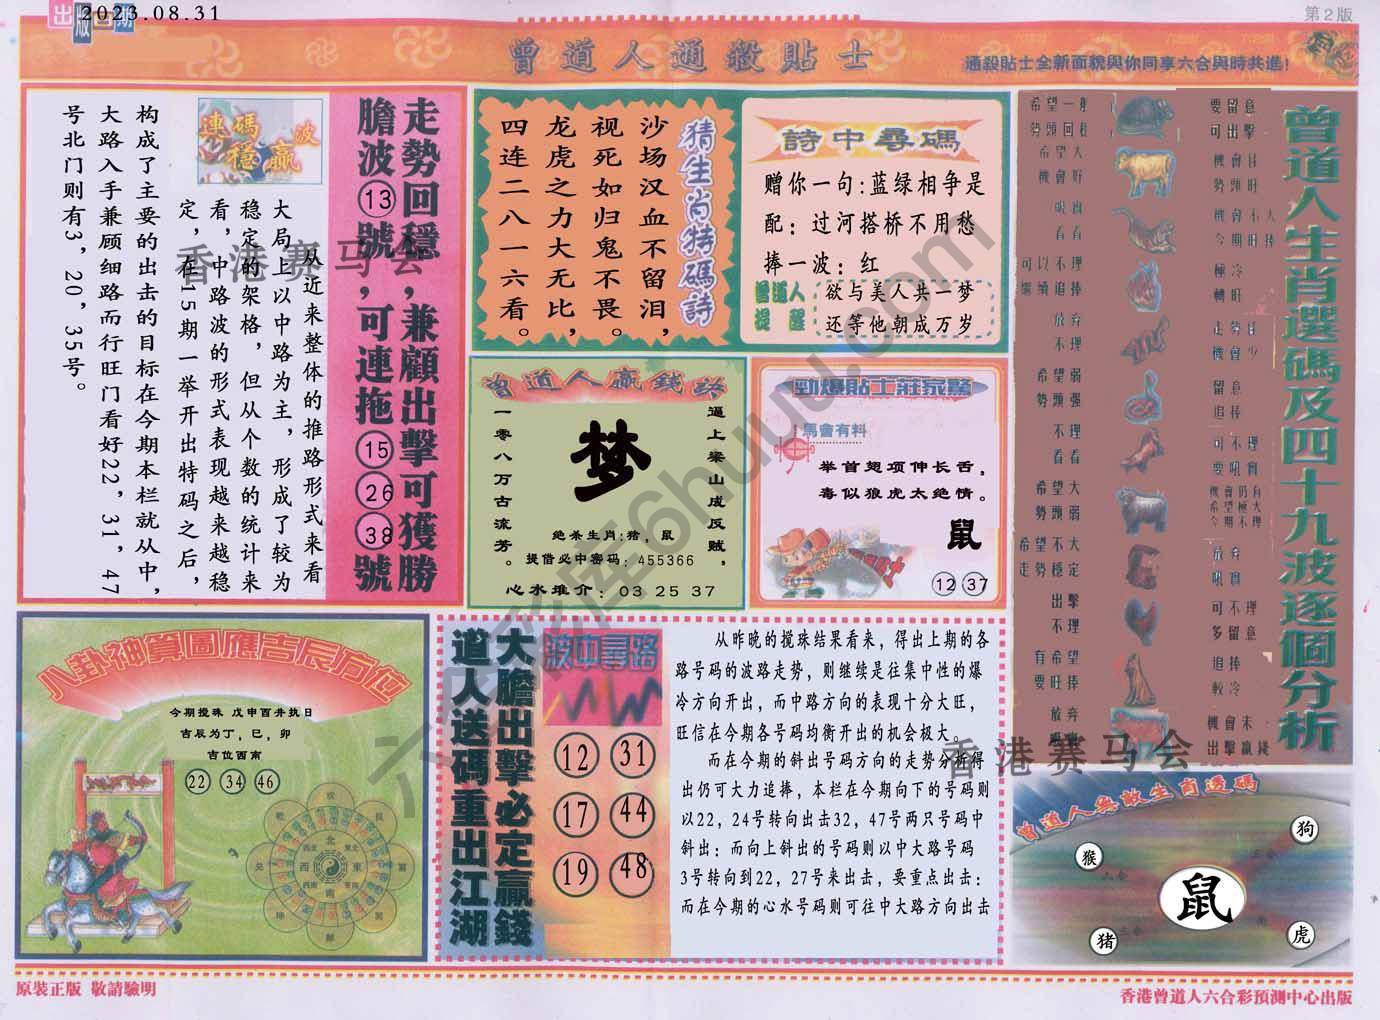 出版日期
2023.08.31
第2版
曾道人通殺貼士
通殺貼士全新面貌與你同享六合與時共進!
走勢回穩,兼顧出擊可獲勝
膽波⑬號,可連拖⑮㉖㊳號
連碼波
穩贏
从近来整体的推路形式来看
大局上以中路为主,形成了较为
稳定的架格,但从个数的统计来
看,中路波的形式表现越来越稳
定,在15期一举开出特码之后,
构成了主要的出击的目标在今期本栏就从中,
大路入手兼顾细路而行旺门看好22,31,47
号北门则有3,20,35号。
猜生肖特碼詩
沙场汉血不留泪,
视死如归鬼不畏。
龙虎之力大无比,
四连二八一六看。
詩中尋碼
赠你一句:蓝绿相争是
配:过河搭桥不用愁
捧一波:红
曾道人
提醒
欲与美人共一梦
还等他朝成万岁
曾道人生肖選碼及四十九波逐個分析
希望一般
勢頭回穩
要留意
可出擊
希望大
機會好
機會佳
勢頭旺
吼實
看看
機會不大
今期旺捧
可以不理
繼續追捧
極冷
轉旺
放弃
不理
走勢佳
機會少
希望弱
勢頭强
留意
追捧
不理
看看
可不理
要吼實
希望大
勢頭弱
機會仍有
希望極大
今期不理
希望不大
走勢穩定
放弃
吼實
出擊
不理
可不理
多留意
有希望
要旺捧
追捧
較冷
放弃
機會未
出擊贏錢
曾道人贏錢
逼上梁山成反贼,
梦
一零八万古流芳。
绝杀生肖:猪,鼠
提借必中密码:455366
心水堆介:03 25 37
勁爆貼士莊家驚
馬會有料
举首翅项伸长舌,
毒似狼虎太绝情。
鼠
12 37
八卦神算圖應吉辰方位
今期搅珠 戊申酉井执日
吉辰为丁,巳,卯
吉位西南
22 34 46
大膽出擊必定贏錢
道人送碼重出江湖
波中尋路
12 31
17 44
19 48
从昨晚的搅珠结果看来,得出上期的各
路号码的波路走势,则继续是往集中性的爆
冷方向开出,而中路方向的表现十分大旺,
旺信在今期各号码均衡开出的机会极大。
而在今期的斜出号码方向的走势分析得
出仍可大力追捧,本栏在今期向下的号码则
以22,24号转向出击32,47号两只号码中
斜出:而向上斜出的号码则以中大路号码
3号转向到22,27号来出击,要重点出击:
而在今期的心水号码则可往中大路方向出击
曾道人無敵生肖透碼
狗
猴
鼠
猪
虎
香港赛马会
香港赛马会
六合彩库6huuu.com
原裝正版 敬請驗明
香港曾道人六合彩預測中心出版